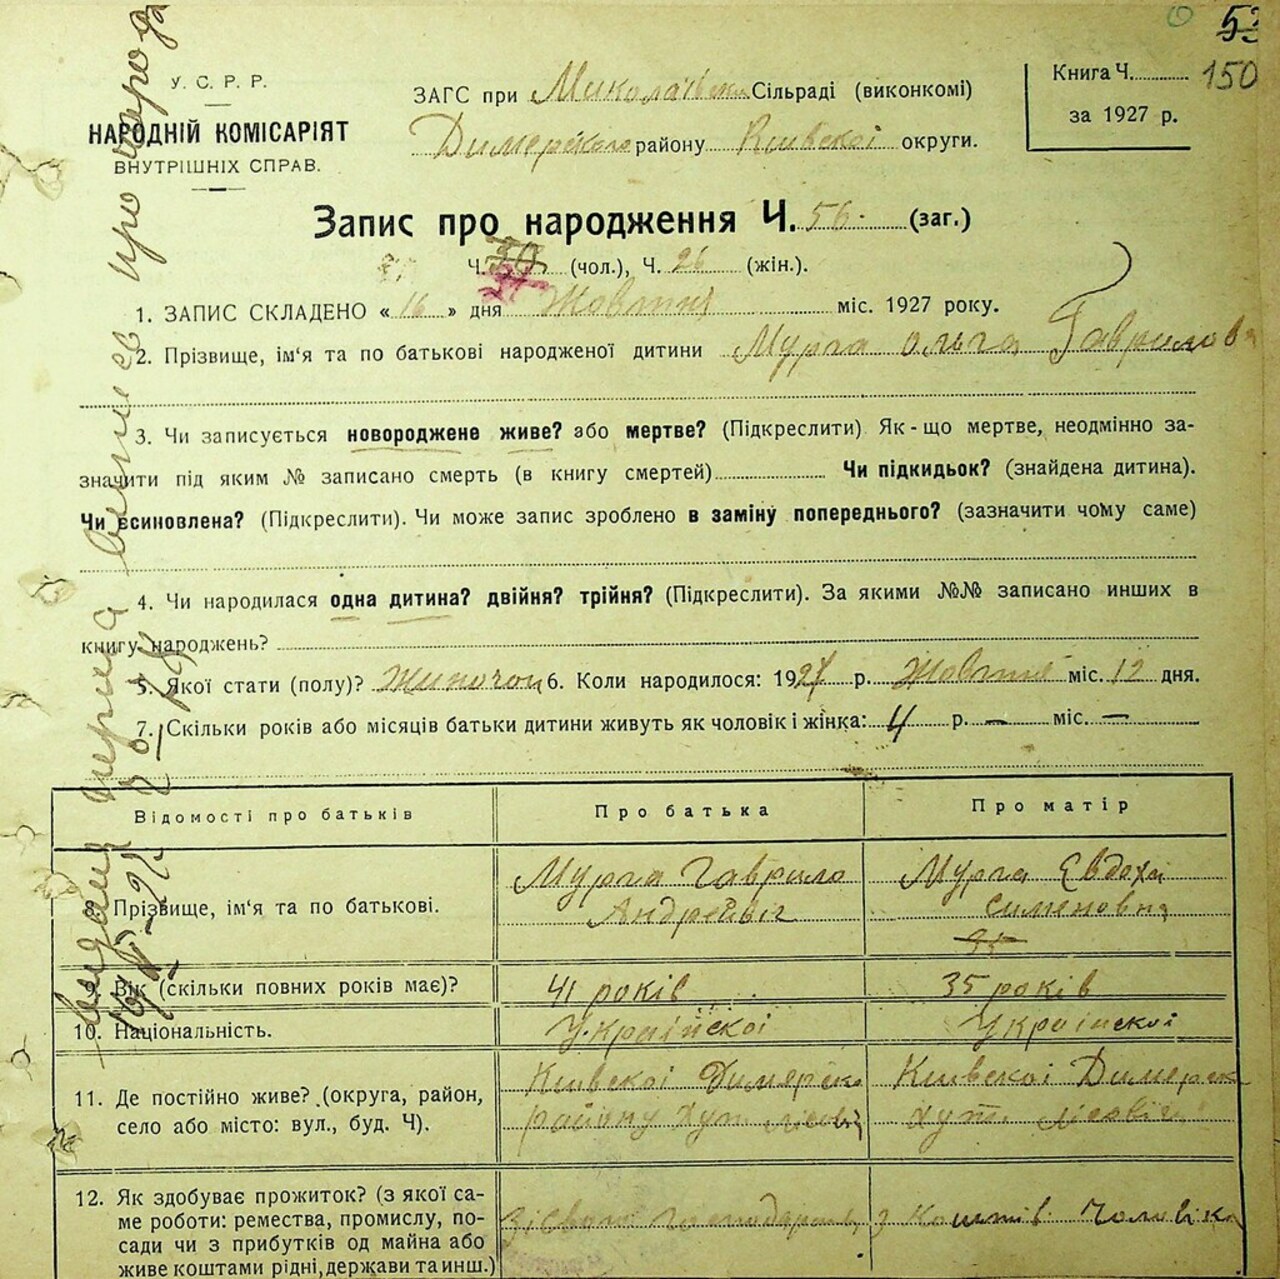 53
150
У. С. Р. Р.
НАРОДНІЙ КОМІСАРІЯТ
ВНУТРІШНІХ СПРАВ.
ЗАГС при Миколаївській Сільраді (виконкомі)
Димерского району Київскої округи.
Книга Ч.
за 1927 р.
Запис про народження Ч. 56. (заг.)
Ч. 30 (чол.), Ч. 26 (жін.).
1. ЗАПИС СКЛАДЕНО « 16 » дня Жовтня міс. 1927 року.
2. Прізвище, ім'я та по батькові народженої дитини Мурга Ольга Гаврилова
3. Чи записується новороджене живе? або мертве? (Підкреслити) Як-що мертве, неодмінно за-
значити під яким № записано смерть (в книгу смертей) Чи підкидьок? (знайдена дитина).
Чи всиновлена? (Підкреслити). Чи може запис зроблено в заміну попереднього? (зазначити чому саме)
4. Чи народилася одна дитина? двійня? трійня? (Підкреслити). За якими №№ записано инших в
книгу народжень?
5. Якої стати (полу)? Жиночои 6. Коли народилося: 1927 р. Жовтня міс. 12 дня.
7. Скільки років або місяців батьки дитини живуть як чоловік і жінка: 4 р. — міс. —
Відомості про батьків
Про батька
Про матір
8. Прізвище, ім'я та по батькові.
Мурга Гаврило
Андрейвіг
Мурга Євдохи
Сименовна
35
9. Вік (скільки повних років має)?
41 років
35 років
10. Національність.
Українскої
Українскої
11. Де постійно живе? (округа, район,
село або місто: вул., буд. Ч).
Київскої Димерско
району Хут
Київскої Димерск
хут.
12. Як здобуває прожиток? (з якої са-
ме роботи: ремества, промислу, по-
сади чи з прибутків од майна або
живе коштами рідні, держави та инш.)
зі Свого господарства
з коштів чоловіка